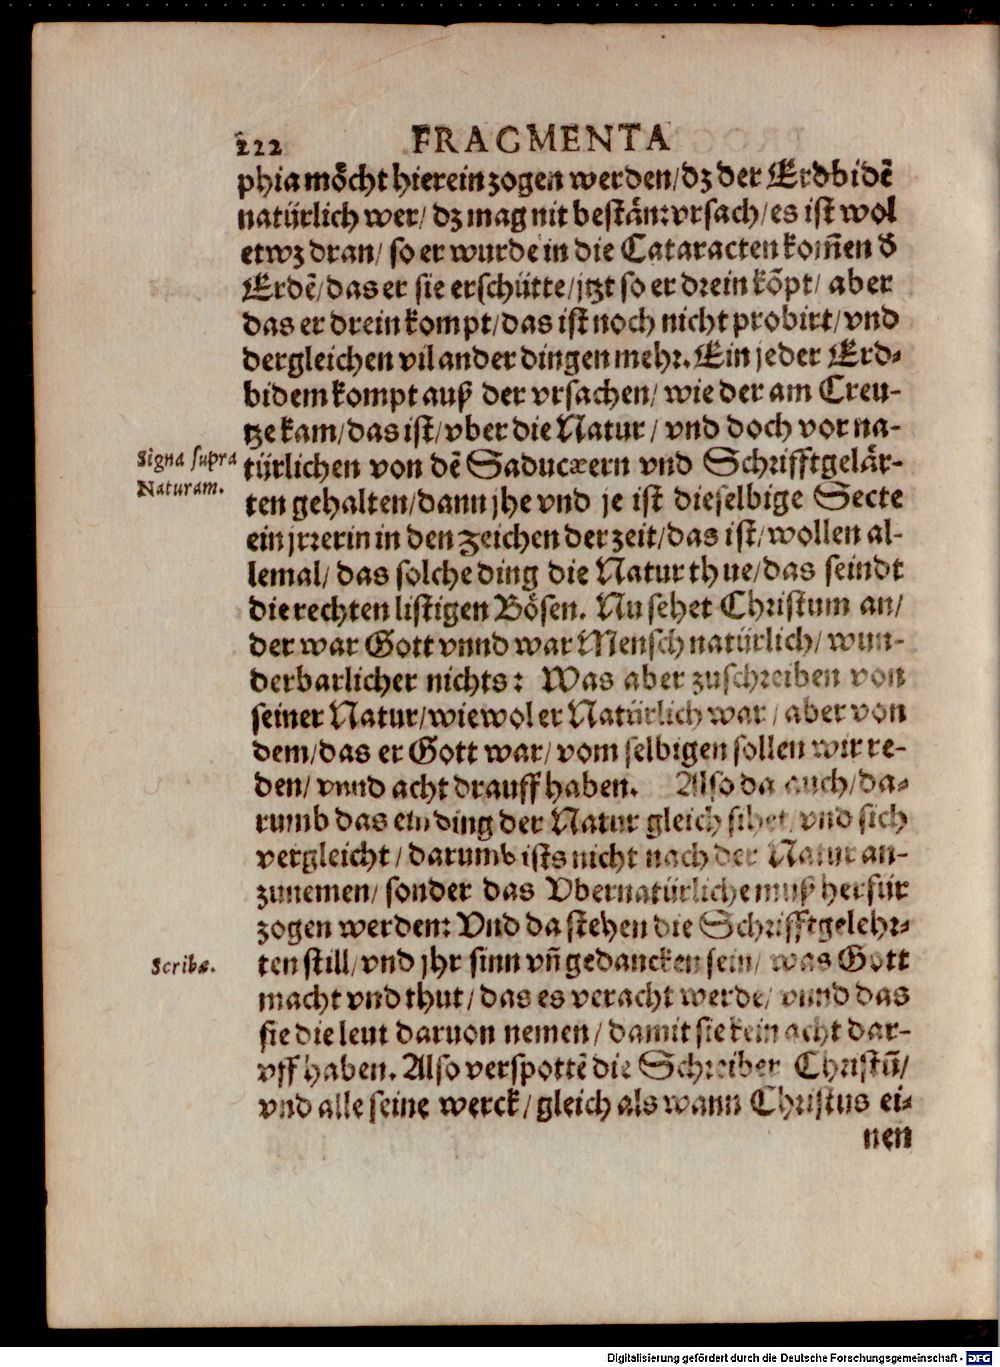 222 FRAGMENTA
phia möcht hierein zogen werden/dz der Erdbidē
natürlich wer/ dz mag nit bestän: vrsach/es ist wol
etwz dran/ so er wurde in die Cataracten kom̄en ď
Erdē/das er sie erschütte/jtzt so er drein kōpt/ aber
das er drein kompt/das ist noch nicht probirt/vnd
dergleichen vil ander dingen mehr. Ein jeder Erd-
bidem kompt auß der vrsachen/ wie der am Creu-
tze kam/das ist/vber die Natur/ vnd doch vor na-
Signa supra
Naturam.
türlichen von dē Saducæern vnd Schrifftgelär-
ten gehalten/dann jhe vnd je ist dieselbige Secte
ein jrrerin in den zeichen der zeit/das ist/wollen al-
lemal/ das solche ding die Natur thue/das seindt
die rechten listigen Bösen. Nu sehet Christum an/
der war Gott vnnd war Mensch natürlich/ wun-
derbarlicher nichts: Was aber zuschreiben von
seiner Natur/wiewol er Natürlich war/ aber von
dem/das er Gott war/ vom selbigen sollen wir re-
den/ vnnd acht drauff haben. Also da auch/da-
rumb das ein ding der Natur gleich sihet/vnd sich
vergleicht/darumb ists nicht nach der Natur an-
zunemen/ sonder das Vbernatürliche muß herfür
zogen werden: Vnd da stehen die Schrifftgelehr-
Scribæ.
ten still/vnd jhr sinn vn̄ gedancken sein/ was Gott
macht vnd thut/das es veracht werde/ vnnd das
sie die leut daruon nemen/damit sie kein acht dar-
vff haben. Also verspottē die Schreiber Christū/
vnd alle seine werck/gleich als wann Christus ei-
nen
Digitalisierung gefördert durch die Deutsche Forschungsgemeinschaft - DFG